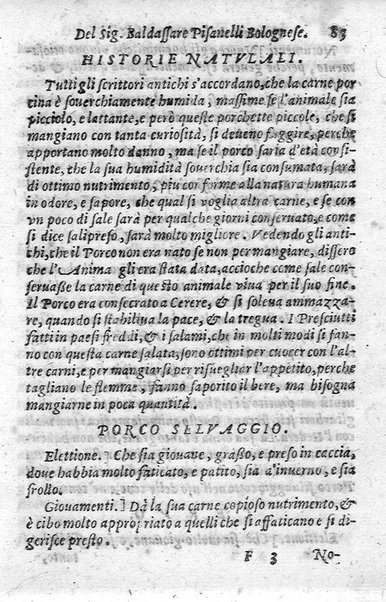 Del Sig. Baldassare Pisanelli Bolognese. 83
HISTORIE NATVLALI.
Tutti gli scrittori antichi s'accordano, che la carne por
cina è souerchiamente humida, massime se l'animale sia
picciolo, e lattante, e però queste porchette piccole, che si
mangiano con tanta curiosità, si deueno fuggire, perche
apportano molto danno, ma se il porco saria d'età consi-
stente, che la sua humidità souerchia sia consumata, sarà
di ottimo nutrimento, piu conforme alla natura humana
in odore, e sapore, che qual si voglia altra carne, e se con
vn poco di sale sarà per qualche giorni conseruato, e come
si dice salipreso, sarà molto migliore. Vedendo gli anti-
chi, che il Porco non era nato se non per mangiare, dissero
che l'Anima gli era stata data, accioche come sale con-
seruasse la carne di questo animale viua per il suo fine.
Il Porco era consecrato a Cerere, & si soleua ammazza-
re, quando si stabiliua la pace, & la tregua. I Presciutti
fatti in paesi freddi, & i salami, che in molti modi si fan-
no con questa carne salata, sono ottimi per cuocer con l'al-
tre carni, e per mangiarsi per risuegliar l'appetito, perche
tagliano le flemme, fanno saporito il bere, ma bisogna
mangiarne in poca quantità.
PORCO SELVAGGIO.
Elettione.] Che sia giouane, grasso, e preso in caccia,
doue habbia molto faticato, e patito, sia d'inuerno, e sia
frollo.
Giouamenti.] Dà la sua carne copioso nutrimento, &
è cibo molto appropriato a quelli che si affaticano e si di-
gerisce presto.
F 3 No-